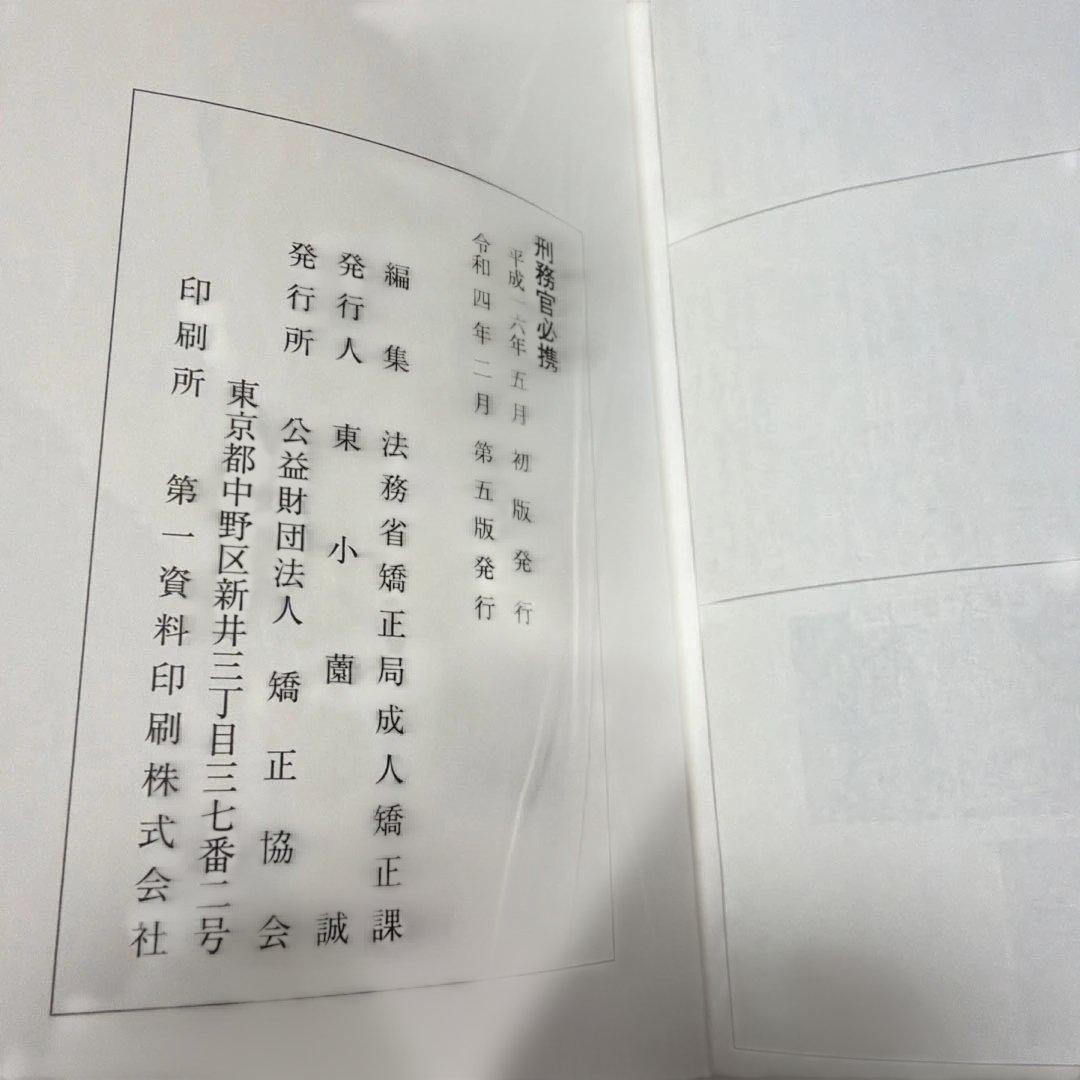 刑務官必携
平成一六年五月 初版発行
令和四年二月 第五版発行
編集 法務省矯正局成人矯正課
発行人 東小薗誠
発行所 公益財団法人 矯正協会
東京都中野区新井三丁目三七番二号
印刷所 第一資料印刷株式会社